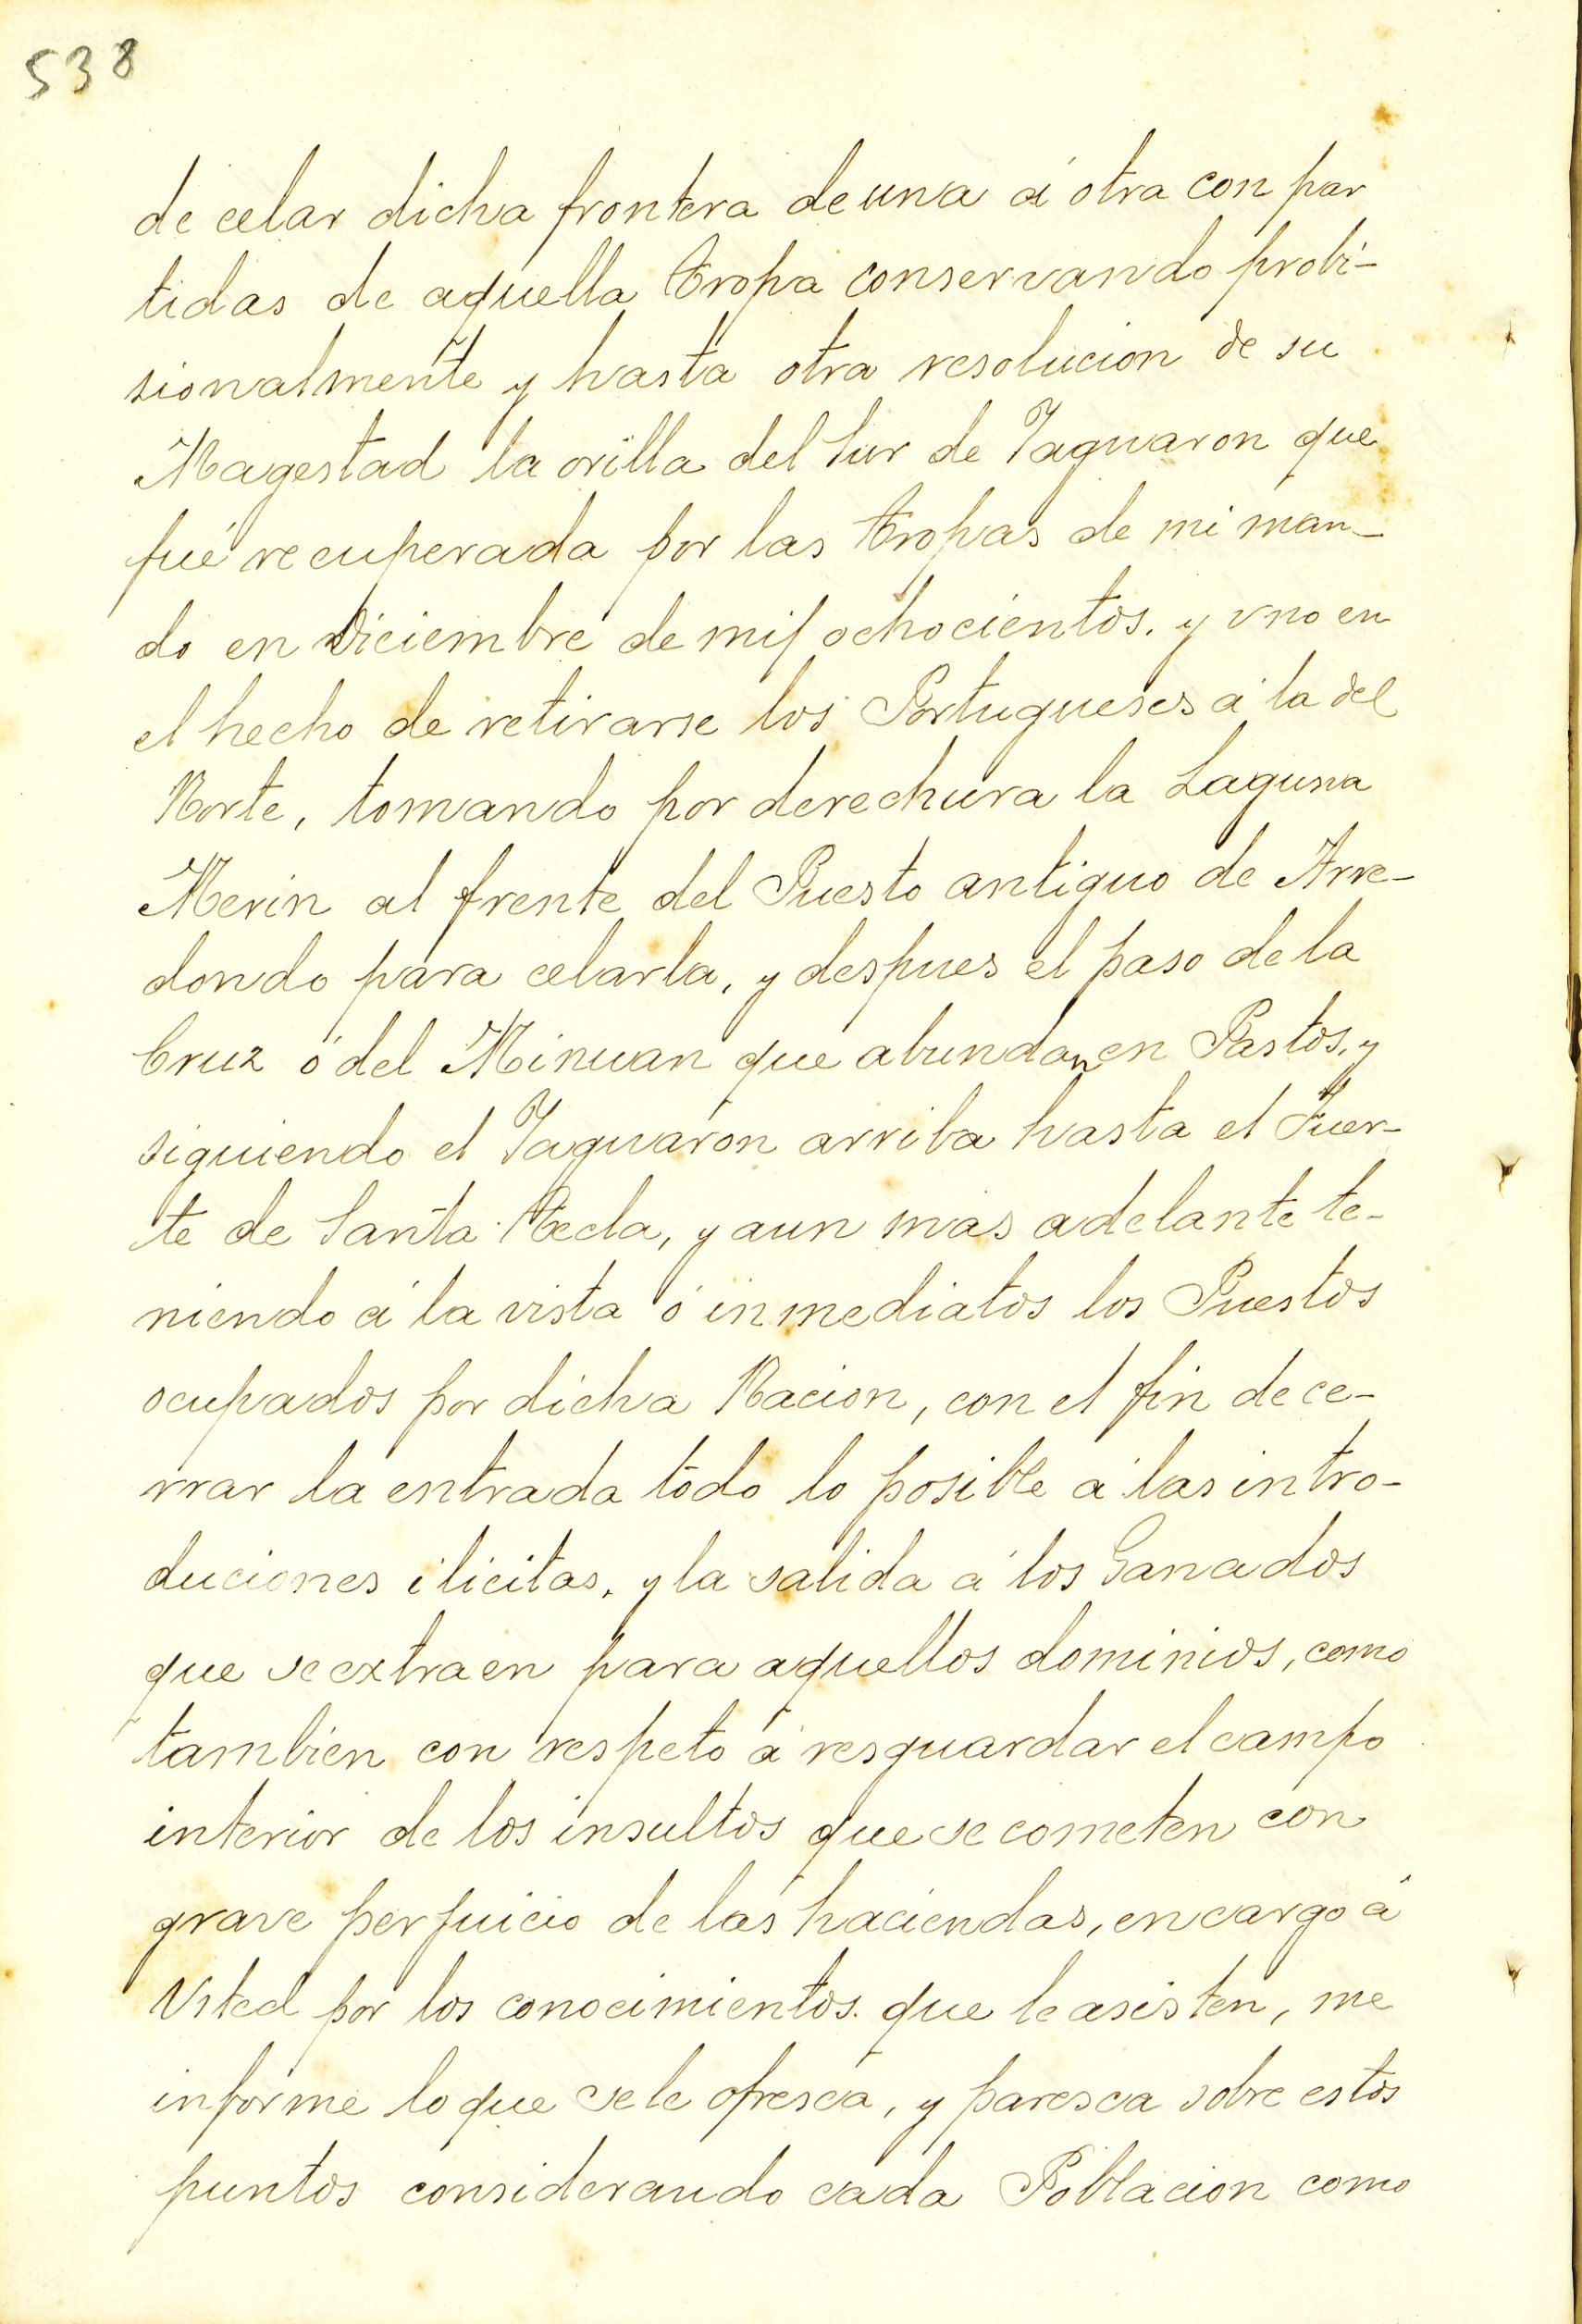 538
de celar dicha frontera de una á otra con par
tidas de aquella tropa conservando probi-
sionalmente y hasta otra resolucion de su
Magestad la orilla del Sur de Yaguaron que
fué recuperada por las tropas de mi man-
do en Diciembre de mil ochocientos. y uno en
el hecho de retirarse los Portugueses á la del
Norte, tomando por derechura la Laguna
Merin al frente del Puesto antiguo de Arre-
dondo para celarla, y despues el paso de la
Cruz ó del Minuan que abundan en Pastos. y
siguiendo el Yaguaron arriba hasta el Fuer-
te de Santa Tecla, y aun mas adelante te-
niendo á la vista ó inmediatos los Puestos
ocupados por dicha Nacion, con el fin de ce-
rrar la entrada todo lo posible á las intro-
duciones ilicitas. y la salida á los Ganados
que se extraen para aquellos dominios, como
tambien con respeto á resguardar el campo
interior de los insultos que se cometen con
grave perjuicio de las haciendas, encargo á
Usted por los conocimientos. que le asisten, me
informe lo que se le ofresca, y paresca sobre estos
puntos considerando cada Poblacion como